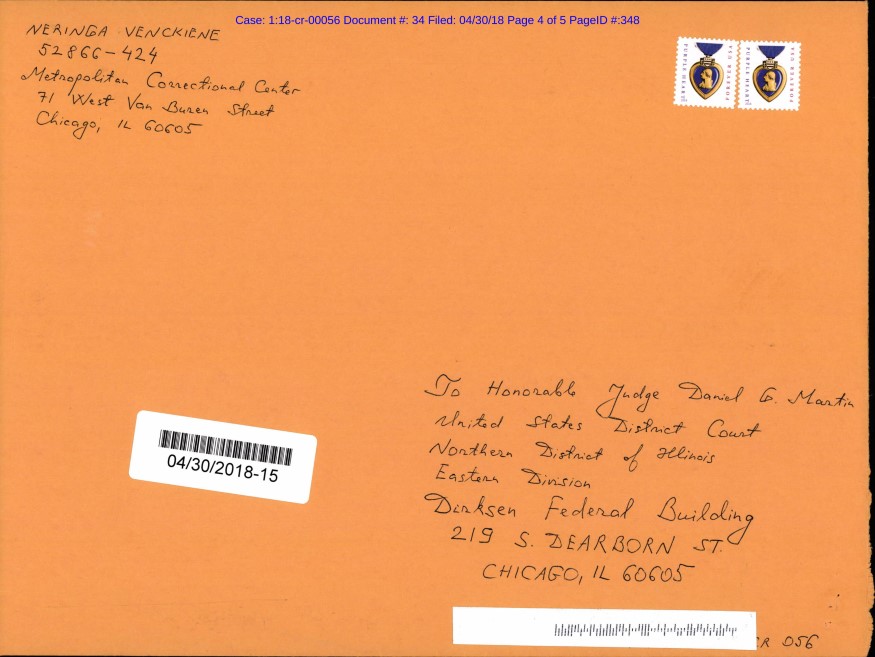 Case: 1:18-cr-00056 Document #: 34 Filed: 04/30/18 Page 4 of 5 PageID #:348
NERINGA VENCKIENE
52866-424
Metropolitan Correctional Center
71 West Van Buren Street
Chicago, IL 60605
PURPLE HEART
USA FOREVER
PURPLE HEART
USA FOREVER
To Honorable Judge Daniel G. Martin
United States District Court
Northern District of Illinois
Eastern Division
Dirksen Federal Building
219 S. DEARBORN ST.
CHICAGO, IL 60605
04/30/2018-15
CR 056